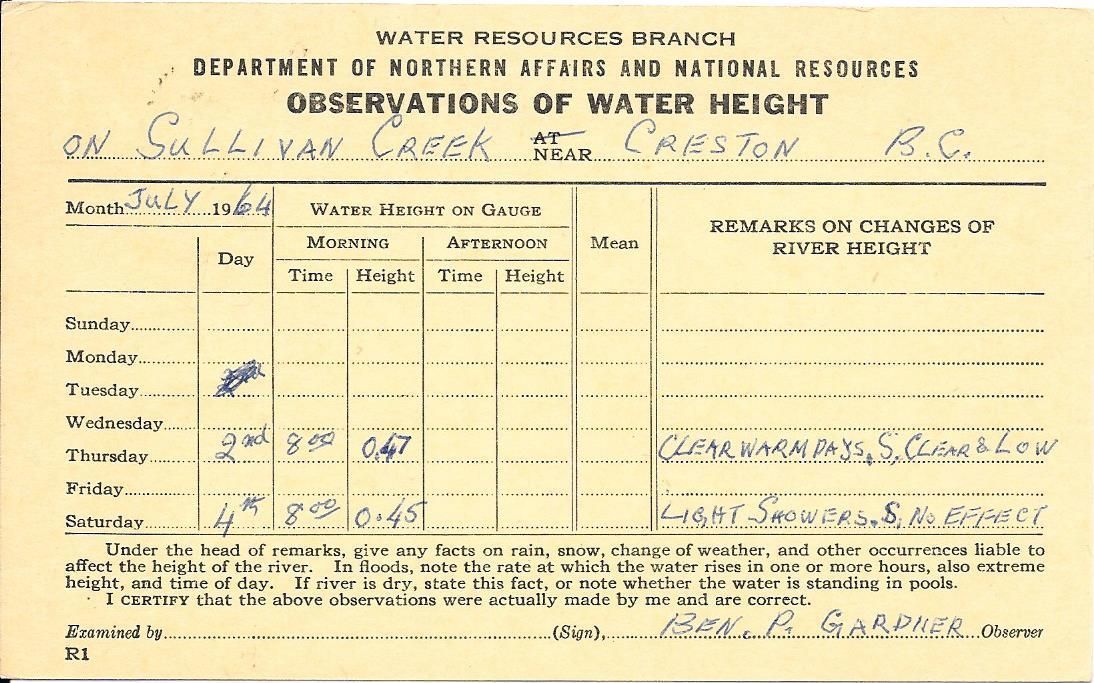 WATER RESOURCES BRANCH
DEPARTMENT OF NORTHERN AFFAIRS AND NATIONAL RESOURCES
OBSERVATIONS OF WATER HEIGHT
ON SULLIVAN CREEK AT NEAR CRESTON B.C.
Month JULY 1964 WATER HEIGHT ON GAUGE Mean REMARKS ON CHANGES OF RIVER HEIGHT
Day MORNING AFTERNOON
Time Height Time Height
Sunday
Monday
Tuesday
Wednesday
Thursday 2nd 8 00 0.47 CLEAR WARM DAYS. S, CLEAR & LOW
Friday
Saturday 4th 8 00 0.45 LIGHT SHOWERS. S, NO EFFECT
Under the head of remarks, give any facts on rain, snow, change of weather, and other occurrences liable to
affect the height of the river. In floods, note the rate at which the water rises in one or more hours, also extreme
height, and time of day. If river is dry, state this fact, or note whether the water is standing in pools.
I CERTIFY that the above observations were actually made by me and are correct.
Examined by (Sign), BEN. P. GARDNER Observer
R1